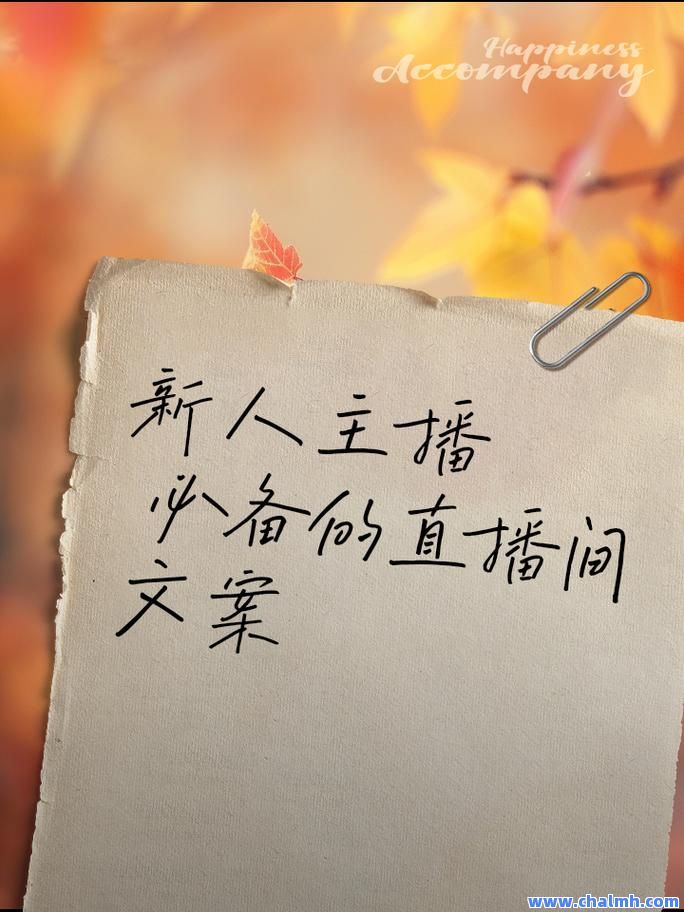 Happiness
Accompany
新人主播
必备的直播间
文案
www.chalmh.com